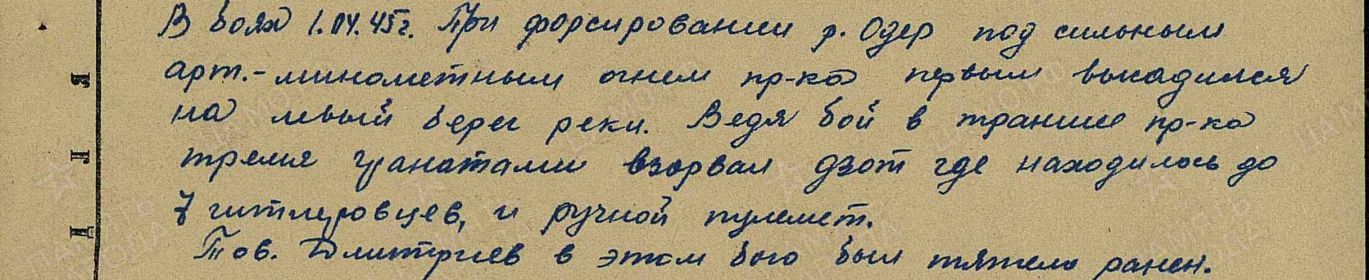 В боях 1.04.45г. При форсировании р. Одер под сильным
арт.-минометным огнем пр-ка первым высадился
на левый берег реки. Ведя бой в траншее пр-ка
тремя гранатами взорвал дзот где находилось до
7 гитлеровцев, и ручной пулемет.
Тов. Дмитриев в этом бою был тяжело ранен.